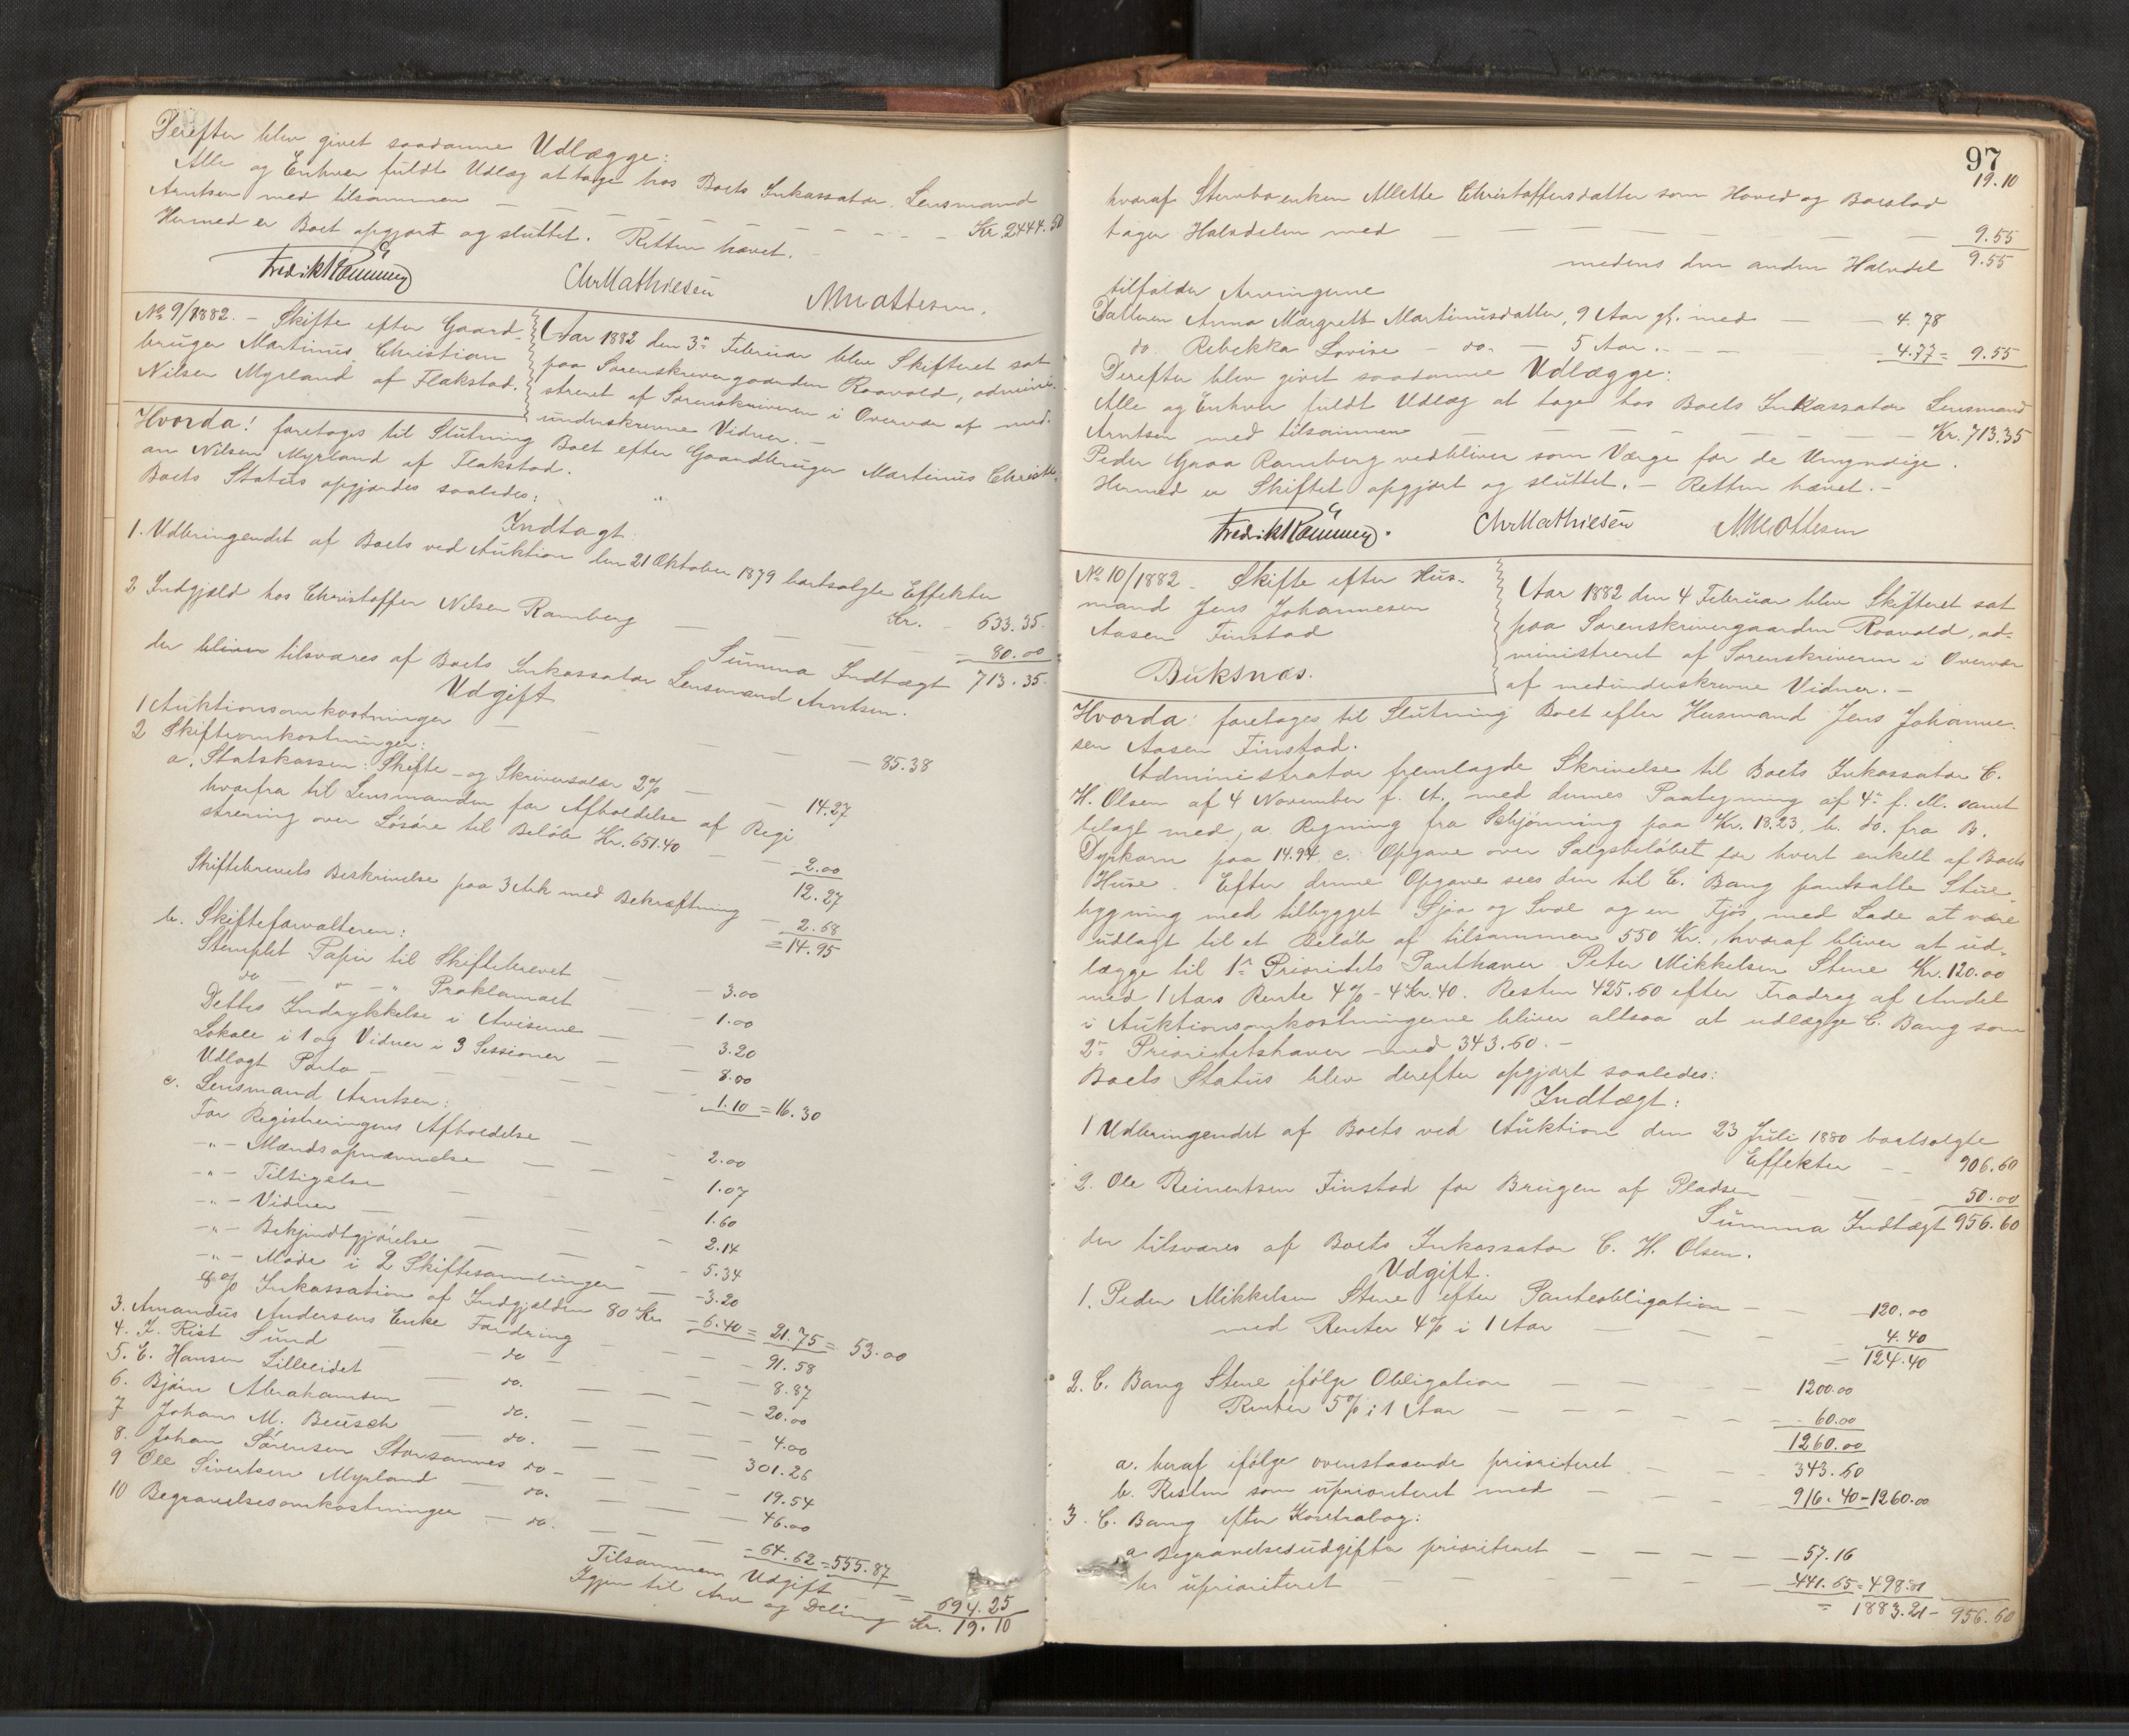 Derefter blev givet saadanne Udlægge:
Alle og Enhver fuldt Udlæg at tage hos Boets Inkassator Lensmand
Arntsen med tilsammen — — — — — — — Kr. 2444.50
Hermed er Boet opgjort og sluttet. Retten hævet. –
Chr Mathiesen
No 9/1882. – Skifte efter Gaard-
bruger Martinus Christian
Nilsen Myrland af Flakstad.
Aar 1882 den 3die Februar blev Skifteret sat
paa Sorenskrivergaarden Raavold, admini-
streret af Sorenskriveren i Overvær af med-
underskrevne Vidner. –
Hvorda! foretoges til Slutning Boet efter Gaardbruger Martinus Christi-
an Nilsen Myrland af Flakstad.
Boets Status opgjordes saaledes:
Indtægt
1. Udbringendet af Boets ved Auktion den 21 Oktober 1879 bortsolgte Effekter
Kr. – 633.35.
2 Indgjæld hos Christoffer Nilsen Ramberg — — — 80.00
Summa Indtægt 713.35.
der bliver tilsvares af Boets Inkassator Lensmand Arntsen.
Udgift
1 Auktionsomkostninger — — — — 85.38
2 Skifteomkostninger:
a. Statskassen: Skifte- og Skriversalær 2% — — 14.27
hvorfra til Lensmanden for Afholdelse af Regi
strering over Løsøre til Beløb Kr. 651.40 — — 2.00
12.27
Skiftebrevets Beskrivelse paa 3 Ark med Bekræftning — 2.68
= 14.95
b. Skifteforvalteren:
Stemplet Papir til Skiftebrevet — — 3.00
do — " — " Proklamaet — — 1.00
Dettes Indrykkelse i Aviserne — — 3.20
Lokale i 1 og Vidner i 3 Sessioner — — 8.00
Udlagt Porto — — — — 1.10 = 16.30
c. Lensmand Arntsen:
For Registreringens Afholdelse — — 2.00
–"– Mændsopnævnelse — — — 1.07
–"– Tilsigelse — — 1.60
–"– Vidner — — — 2.14
–"– Bekjendtgjørelse — — — 5.34
–"– Møde i 2 Skiftesamlinger — – 3.20
8% Inkassation af Indgjælden 80 Kr – 6.40 = 21.75 = 53.00
3. Amandus Andersens Enke Fordring — — — 91.58
4. J. Rist Sund — do — — — 8.87
5. E. Hansen Lilleeidet — do. — — — 20.00
6. Bjørn Abrahamsen — do. — — — 4.00
7 Johan M. Beusch — do. — — — 301.26
8. Johan Sørensen Storsannes do — — — 19.54
9 Ole Sivertsen Myrland — do. — — — 46.00
10 Begravelsesomkostninger — do. — — – 64.62 = 555.87
Tilsammen Udgift = 694.25
Igjen til Arv og Deling Kr. 19.10
97
19.10
hvoraf Stervboenken Allette Christoffersdatter som Hoved og Boeslod
tager Halvdelen med — — — — — 9.55
medens den anden Halvdel 9.55
tilfalder Arvingerne
Datteren Anna Margrett Martinusdatter, 9 Aar gl. med — — 4.78
do Rebekka Lovise — do. — 5 Aar. — — 4.77 = 9.55
Derefter blev givet saadanne Udlægge:
Alle og Enhver fuldt Udlæg at tage hos Boets Inkassator Lensmand
Arntsen med tilsammen — — — — — — Kr. 713.35
Peder Graa Ramberg vedbliver som Værge for de Umyndige.
Hermed er Skiftet opgjort og sluttet. – Retten hævet. –
Chr Mathiesen
No 10/1882 – Skifte efter Hus-
mand Jens Johannesen
Aasen Finstad
Buksnæs.
Aar 1882 den 4 Februar blev Skifteret sat
paa Sorenskrivergaarden Raavold, ad-
ministreret af Sorenskriveren i Overvær
af medunderskrevne Vidner. –
Hvorda! foretoges til Slutning Boet efter Husmand Jens Johanne-
sen Aasen Finstad.
Administrator fremlagde Skrivelse til Boets Inkassator C.
H. Olsen af 4 November f. A. med dennes Paategning af 4de f. M. samt
belagt med, a. Regning fra Schjønning paa Kr. 18.23, b. do. fra B.
Dypkorn paa 14.94 c. Opgave over Salgsbeløbet for hvert enkelt af Boets
Huse. Efter denne Opgave sees den til C. Bang pantsatte Stue-
bygning med tilbygget Sjaa og Sval og en Fjøs med Lade at være
udlagt til et Beløb af tilsammen 550 Kr., hvoraf bliver at ud-
lægge til 1ste Prioritets Panthaver Peter Mikkelsen Stene Kr. 120.00
med 1 Aars Rente 4% – 4 Kr. 40. Resten 425.60 efter Fradrag af Andel
i Auktionsomkostningerne bliver altsaa at udlægge C. Bang som
2den Prioritetshaver – med 343.60. –
Boets Status blev derefter opgjort saaledes:
Indtægt:
1 Udbringendet af Boets ved Auktion den 23 Juli 1880 bortsolgte
Effekter — — 906.60
2. Ole Reinertsen Finstad for Brugen af Pladsen — — — 50.00
Summa Indtægt 956.60
der tilsvares af Boets Inkassator C. H. Olsen.
Udgift.
1. Peder Mikkelsen Stene efter Panteobligation — — 120.00
med Renter 4% i 1 Aar — — — 4.40
= 124.40
2. C. Bang Stene ifølge Obligation — — — 1200.00
Renter 5% i 1 Aar — — — — 60.00
1260.00
a. heraf ifølge ovenstaaende prioriteret — — — 343.60
b. Resten som uprioriteret med — — — 916.40 – 1260.00
3. C. Bang efter Kontrabog:
a Begravelsesudgifter prioriteret — — — — 57.16
b. uprioriteret — — — — 441.65 = 498.81
= 1883.21 – 956.60